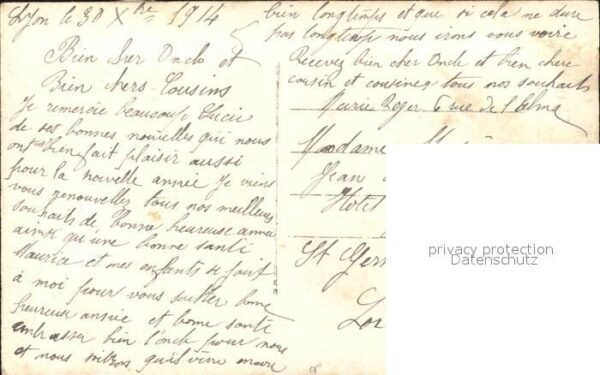 Lyon le 30 Xbre 1914
Bien cher Oncle et
Bien chers Cousins
Je remercie beaucoup Lucie
de ses bonnes nouvelles qui nous
ont bien fait plaisir aussi
pour la nouvelle année Je viens
vous renouvellez tous nos meilleurs
souhaits de bonne heureuse année
ainsi que une bonne santé
Maurice et mes enfants se
à moi pour vous bonne
heureuse année et bonne santé
embrasser bien l'oncle pour nous
et nous qu'il vivre encore
bien longtemps et que si cela ne dure
pas longtemps nous irons vous voire
Recevez bien cher Oncle et bien chere
cousin et cousines tous nos souhaits
Marie Roger 6 rue de
Madame
Jean
Hotel
St Ger
Lor
privacy protection
Datenschutz